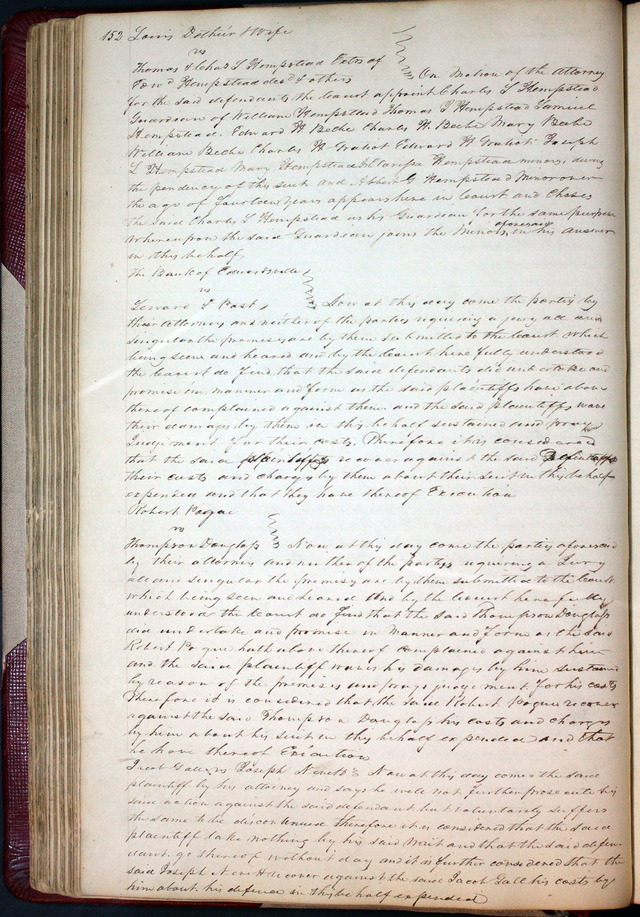 152 Louis Dothier & Wife
vs
Thomas & Chas S Hempstead Extrs of
Edwd Hempstead decd & others On Motion of the Attorney
for the said defendants the Court appoint Charles S Hempstead
Guardian of William Hempstead Thomas Hempstead Samuel
Hempstead, Edward H Beebe Charles H. Beebe Mary Beebe
William Beebe Charles H Gratiot Edward H Gratiot Joseph
L Hempstead Mary Hempstead & Hempstead minors, during
the pendency of this suit and Hempstead Minor over
the age of fourteen years appears here in Court and Choses
the said Charles S Hempstead as his Guardian for the same purpose
Whereupon the said Guardian joins the Minors aforesaid in his answer
in this behalf,
The Bank of Edwardsville
vs
Leonard & Post, Now at this day come the parties by
their Attorneys and neither of the parties requiring a jury all and
singular the premises are by them submitted to the Court which
being seen and heard and by the Court here fully understood
the Court do find that the said defendants did undertake and
promise in manner and form as the said plaintiffs have above
thereof complained against them and the said plaintiffs wave
their damages by them in this behalf sustained and pray
Judgement for their costs. Therefore it is considered
that the said plaintiffs recover against the said Defendants
their costs and charges by them about their suit in this behalf
expended and that they have thereof Execution
Robert Pogue
vs
Thompson Douglass Now at this day come the parties aforesaid
by their attornies and neither of the parties requiring a Jury
all and singular the premises are by them submitted to the Court
which being seen and heard and by the Court here fully
understood the Court do find that the said Thompson Douglass
did undertake and promise in Manner and Form as the said
Robert Pogue hath above thereof complained against him
and the said plaintiff waves his damages by him sustained
by reason of the premises and prays judgement for his costs
Therefore it is considered that the said Robert Pogue recover
against the said Thompson Douglass his costs and charges
by him about his suit in this behalf expended and that
he have thereof Execution
Jacob Gall vs Joseph Now at this day comes the said
plaintiff by his attorney and says he will not further prosecute his
said action against the said defendant but voluntarily suffers
the same to be discontinued therefore it is considered that the said
plaintiff take nothing by his said writ and that the said defen
dant go thereof without day and it is further considered that the
said Joseph recover against the said Jacob Gall his costs by
him about his defence in this behalf expended